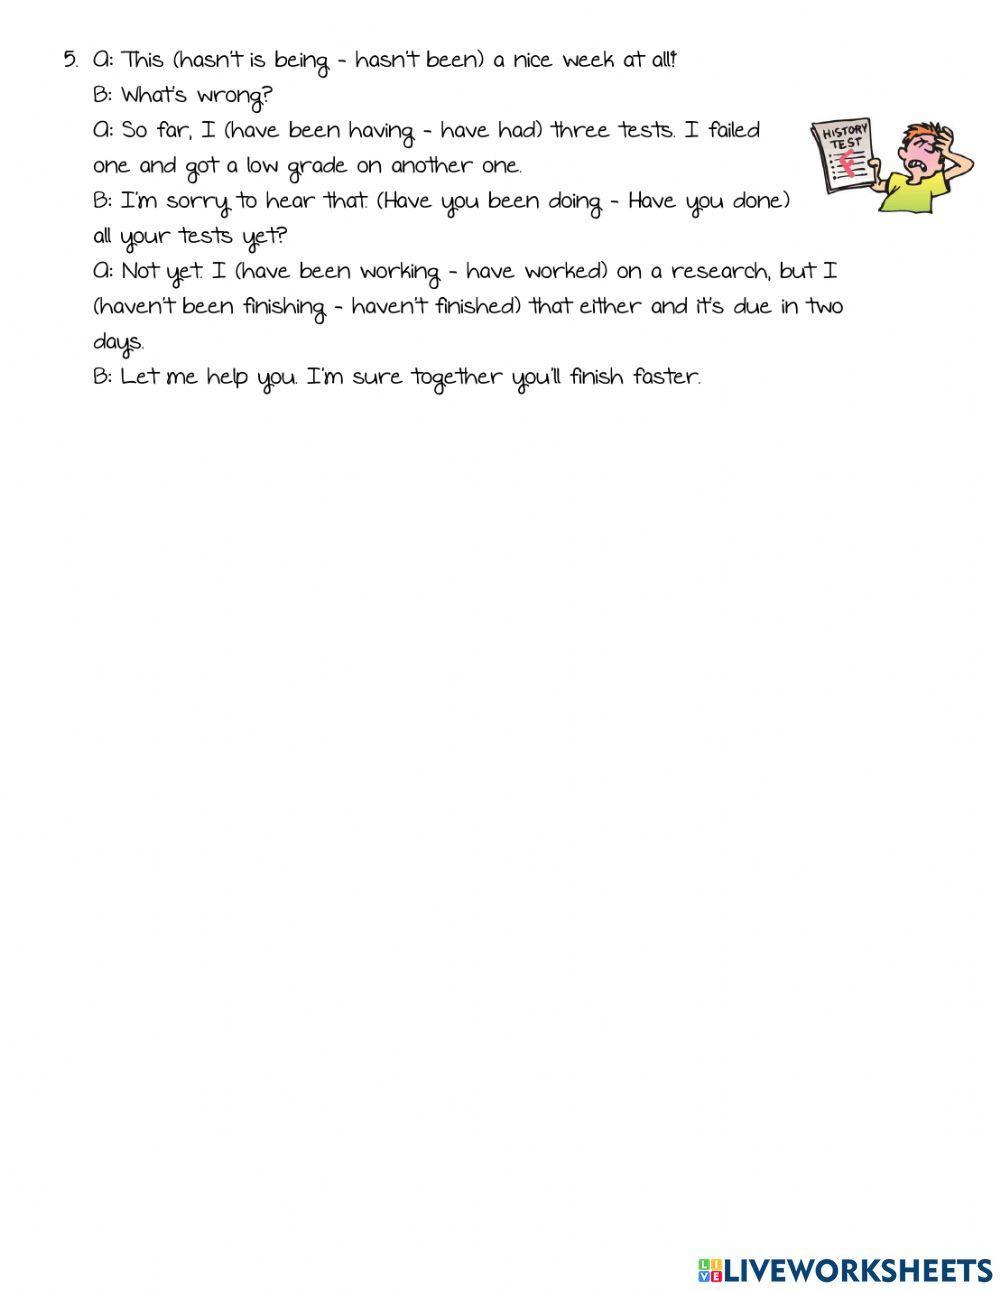 5. A: This (hasn't is being - hasn't been) a nice week at all!
B: What's wrong?
A: So far, I (have been having - have had) three tests. I failed
one and got a low grade on another one.
B: I'm sorry to hear that. (Have you been doing - Have you done)
all your tests yet?
A: Not yet. I (have been working - have worked) on a research, but I
(haven't been finishing - haven't finished) that either and it's due in two
days.
B: Let me help you. I'm sure together you'll finish faster.
HISTORY
TEST
F
LIVE LIVEWORKSHEETS